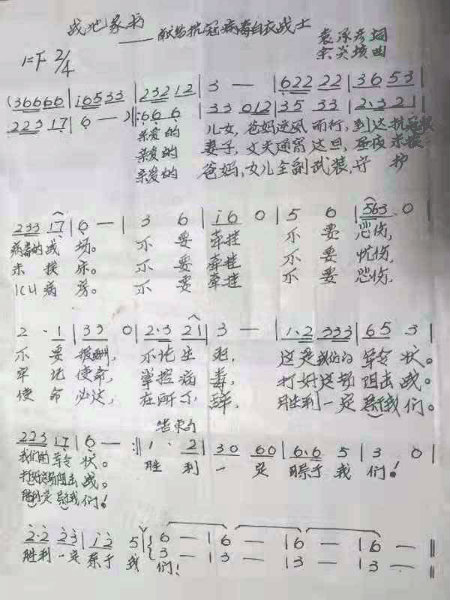 战地家书
——献给抗冠病毒白衣战士
1=F 2/4
(36666 | i6533 | 23212 | 3 — | 62222 | 3653 |
22317 | 6 — ) ‖: 666 | 33 012 | 35 33 | 2·321 |
亲爱的 儿女, 爸妈逆风而行, 到达抗冠
亲爱的 妻子, 丈夫
亲爱的 爸妈, 女儿全副武装, 守护
233 17 | 6 — | 3 6 | i6 0 | 5 6 | 563 0 |
病毒的战场。 不要牵挂 不要悲伤,
不要牵挂 不要忧伤,
ICU病房。 不要牵挂 不要悲伤,
2 · 1 | 33 0 | 2·3 21 | 3 — | 1·2 333 | 65 3 |
不要 不论生死, 这是我们的军令状。
牢记使命, 掌控病毒, 打好这场阻击战。
使命必达, 在所不辞, 胜利一定属于我们。
223 17 | 6 — :‖ 1 · 2 | 30 60 | 6·6 5 | 3 0 |
我们的军令状。 胜利一定属于我们!
打好这场阻击战。
胜利一定属于我们!
2·2 23 | 12 5 | 6 — | 6 — | 6 — | 6 — ‖
3 — | 3 — | 3 — | 3 — ‖
胜利一定属于我们!